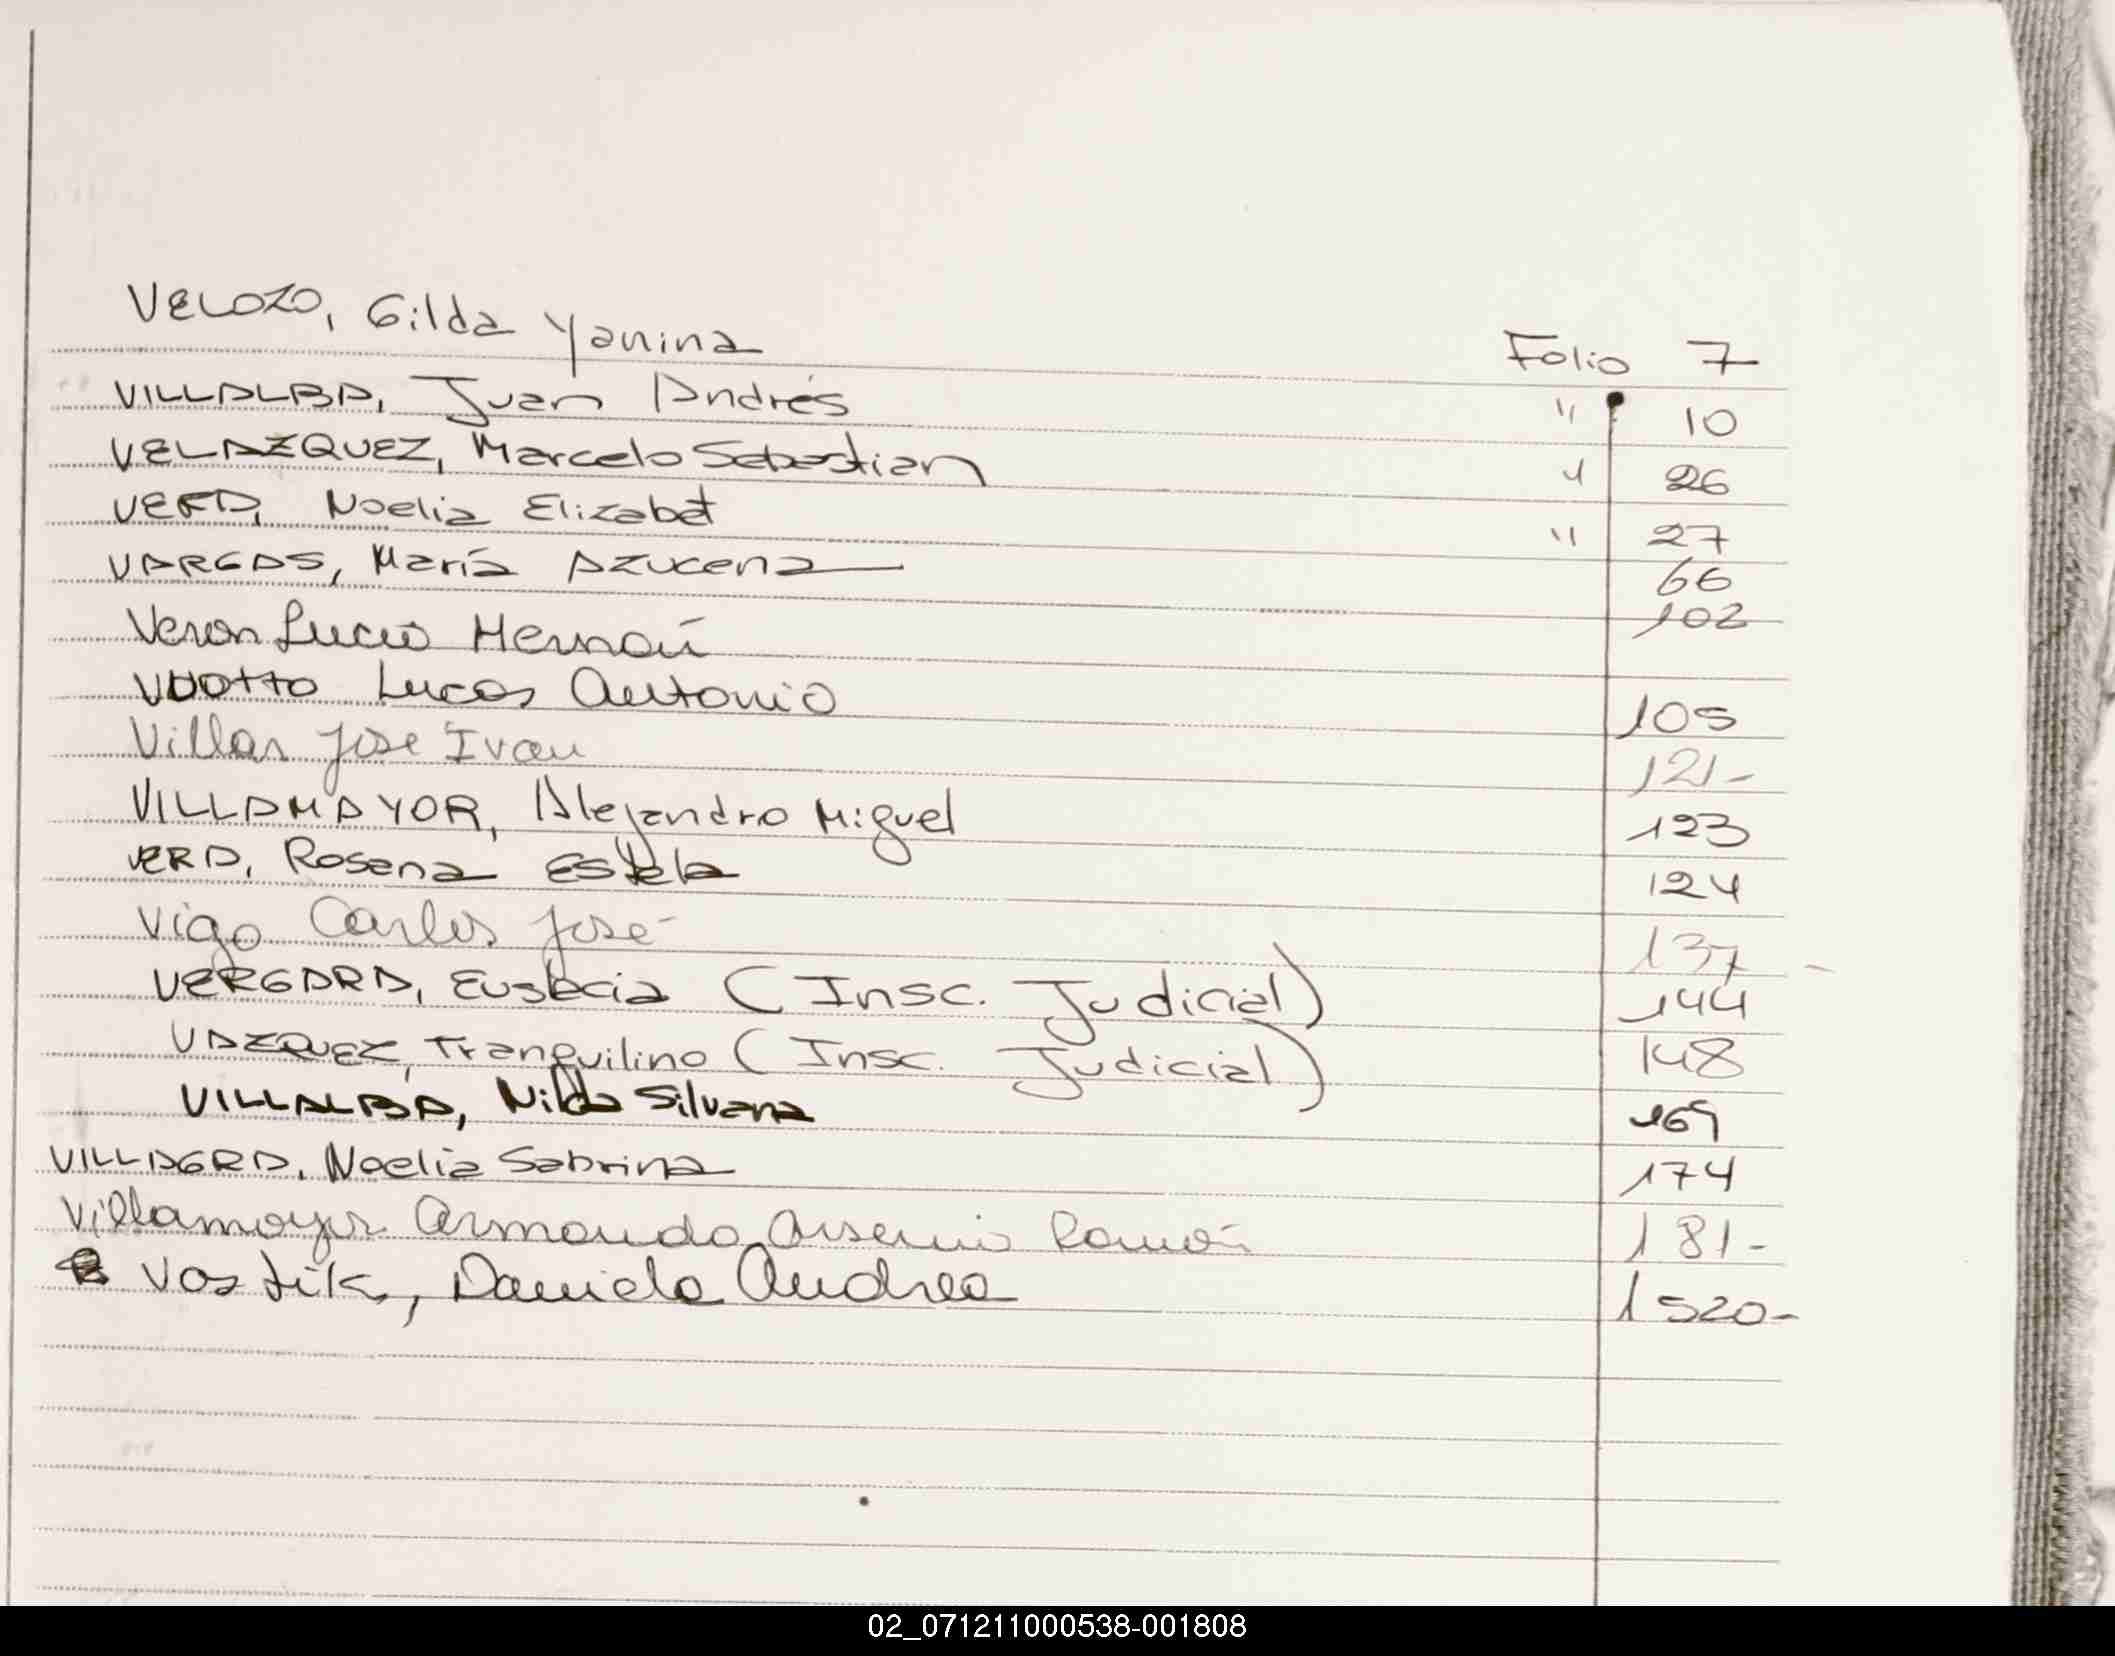 VELOZO, Gilda Yanina Folio 7
VILLALBA, Juan Andrés " 10
VELAZQUEZ, Marcelo Sebastian " 26
VERA, Noelia Elizabet " 27
VARGAS, María Azucena 66
Veron Lucio Hernán 102
VUOTTO Lucas Antonio 105
Villar Jose Ivan 121-
VILLAMAYOR, Alejandro Miguel 123
VERA, Rosana Estela 124
Vigo Carlos José 137 -
VERGARA, Eusebia (Insc. Judicial) 144
VAZQUEZ, Tranquilino (Insc. Judicial) 148
VILLALBA, Nilda Silvana 169
VILLAGRA, Noelia Sabrina 174
Villamayor Armando Arsenio Ramón 181-
Vostik, Daniela Andrea 1520-
02_071211000538-001808